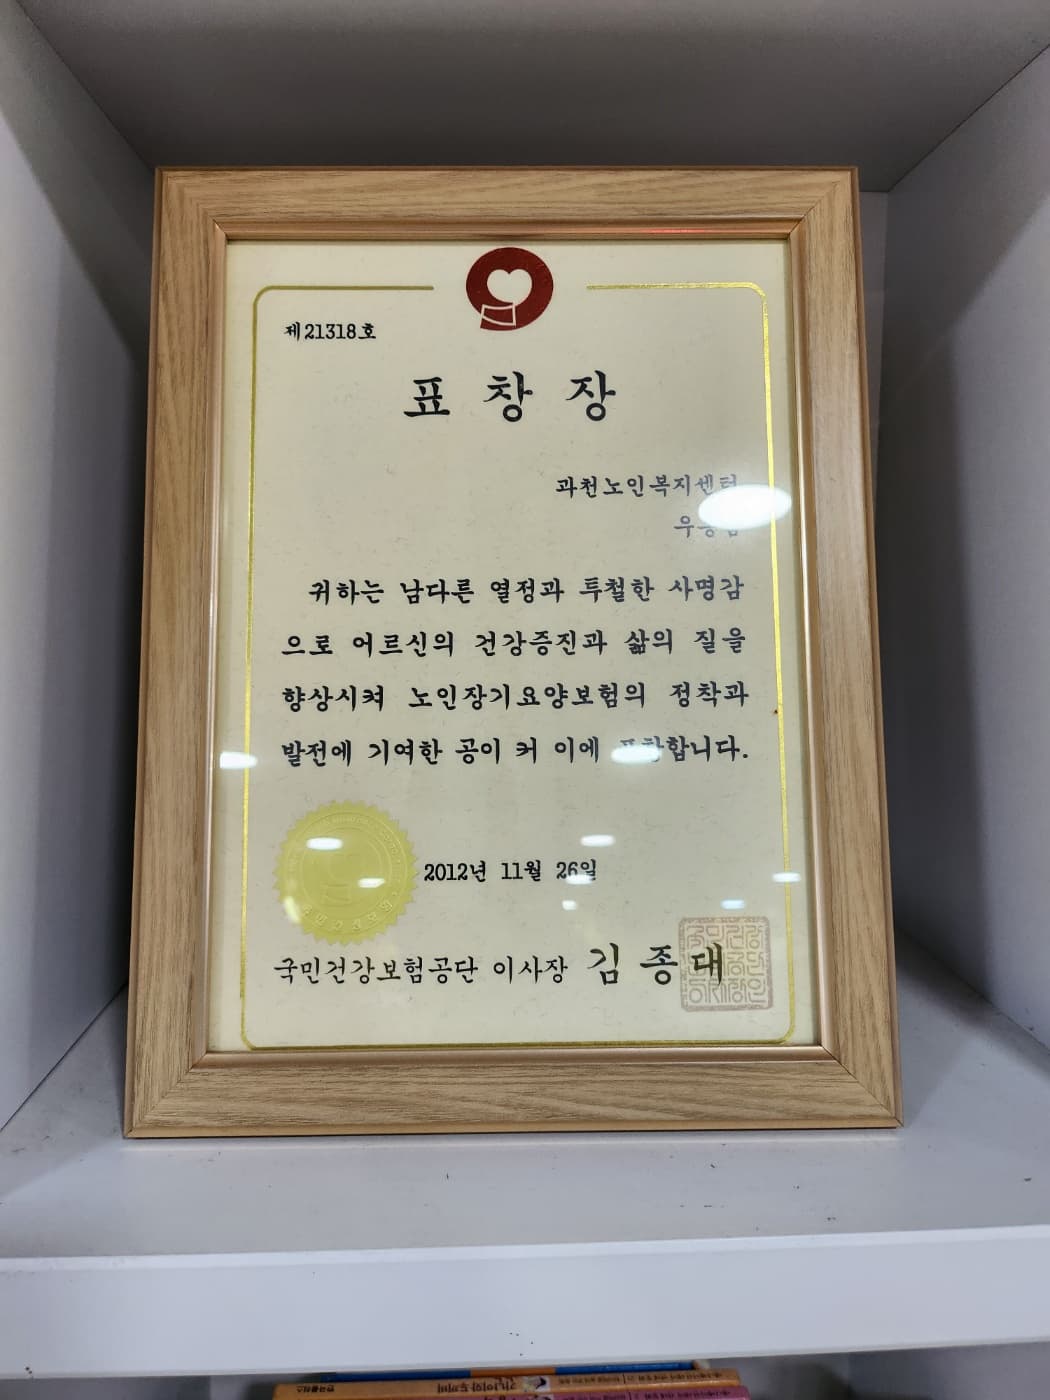 제21318호
표 창 장
과천노인복지센터
귀하는 남다른 열정과 투철한 사명감
으로 어르신의 건강증진과 삶의 질을
향상시켜 노인장기요양보험의 정착과
발전에 기여한 공이 커 이에 표창합니다.
2012년 11월 26일
국민건강보험공단 이사장 김 종 대